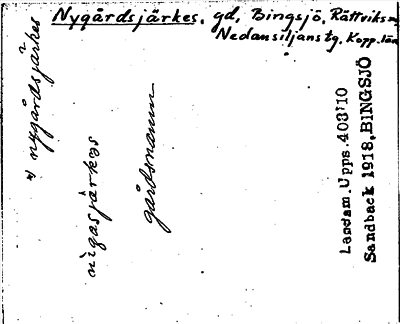 Nygårdsjärkes, gd, Bingsjö, Rättviks
Nedansiljans tg. Kopp. län
*) nygårdsjärkes
nìgasjärkəs
gårdsnamn
Landsm. Upps. 403:10
Sandback 1918. BINGSJÖ